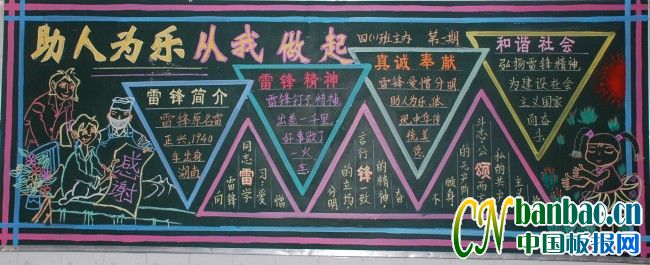 助人为乐从我做起
四(1)班主办 第一期
雷锋简介
雷锋原名雷
正兴,1940
年出身
湖南
雷锋精神
雷锋行于精神
出差一千里
好事做了
一火
车
真诚奉献
雷锋爱憎分明
助人为乐,体
现中华传
统美
德
和谐社会
弘扬雷锋精神
为建设社会
主义国家
而奋
斗
感谢
向雷锋
同志
雷
学
习:爱
憎
分明
的立场
言行
锋
一致
的精神
奋
不
顾身
斗志,公
颂
而
私的共
主
CN banbao.cn
中国板报网